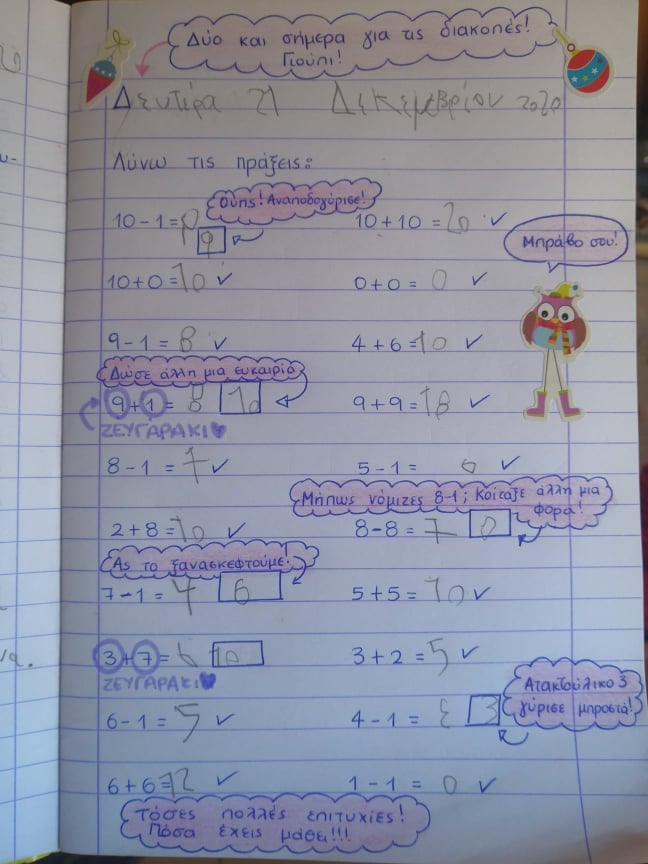 Δύο και σήμερα για τις διακοπές!
Γιούπι!
Δευτέρα 21 Δεκεμβρίου 2020
Λύνω τις πράξεις:
Ούπς! Αναποδογύρισε!
10 - 1 = 9 10 + 10 = 20 ✓
9
Μπράβο σου!
10 + 0 = 10 ✓ 0 + 0 = 0 ✓
9 - 1 = 8 ✓ 4 + 6 = 10 ✓
Δώσε άλλη μια ευκαιρία
9 + 1 = 8 10 9 + 9 = 18 ✓
ΖΕΥΓΑΡΑΚΙ
8 - 1 = 7 ✓ 5 - 1 = ✓
Μήπως νόμιζες 8-1; Κοίταξε άλλη μια
φορά!
2 + 8 = 10 ✓ 8 - 8 = 7 0
Ας το ξανασκεφτούμε!
7 - 1 = 4 6 5 + 5 = 10 ✓
3 + 7 = 6 10 3 + 2 = 5 ✓
ΖΕΥΓΑΡΑΚΙ
Ατακτούλικο 3
γύρισε μπροστά!
6 - 1 = 5 ✓ 4 - 1 = ε 3
6 + 6 = 12 ✓ 1 - 1 = 0 ✓
Τόσες πολλές επιτυχίες!
Πόσα έχεις μάθει!!!